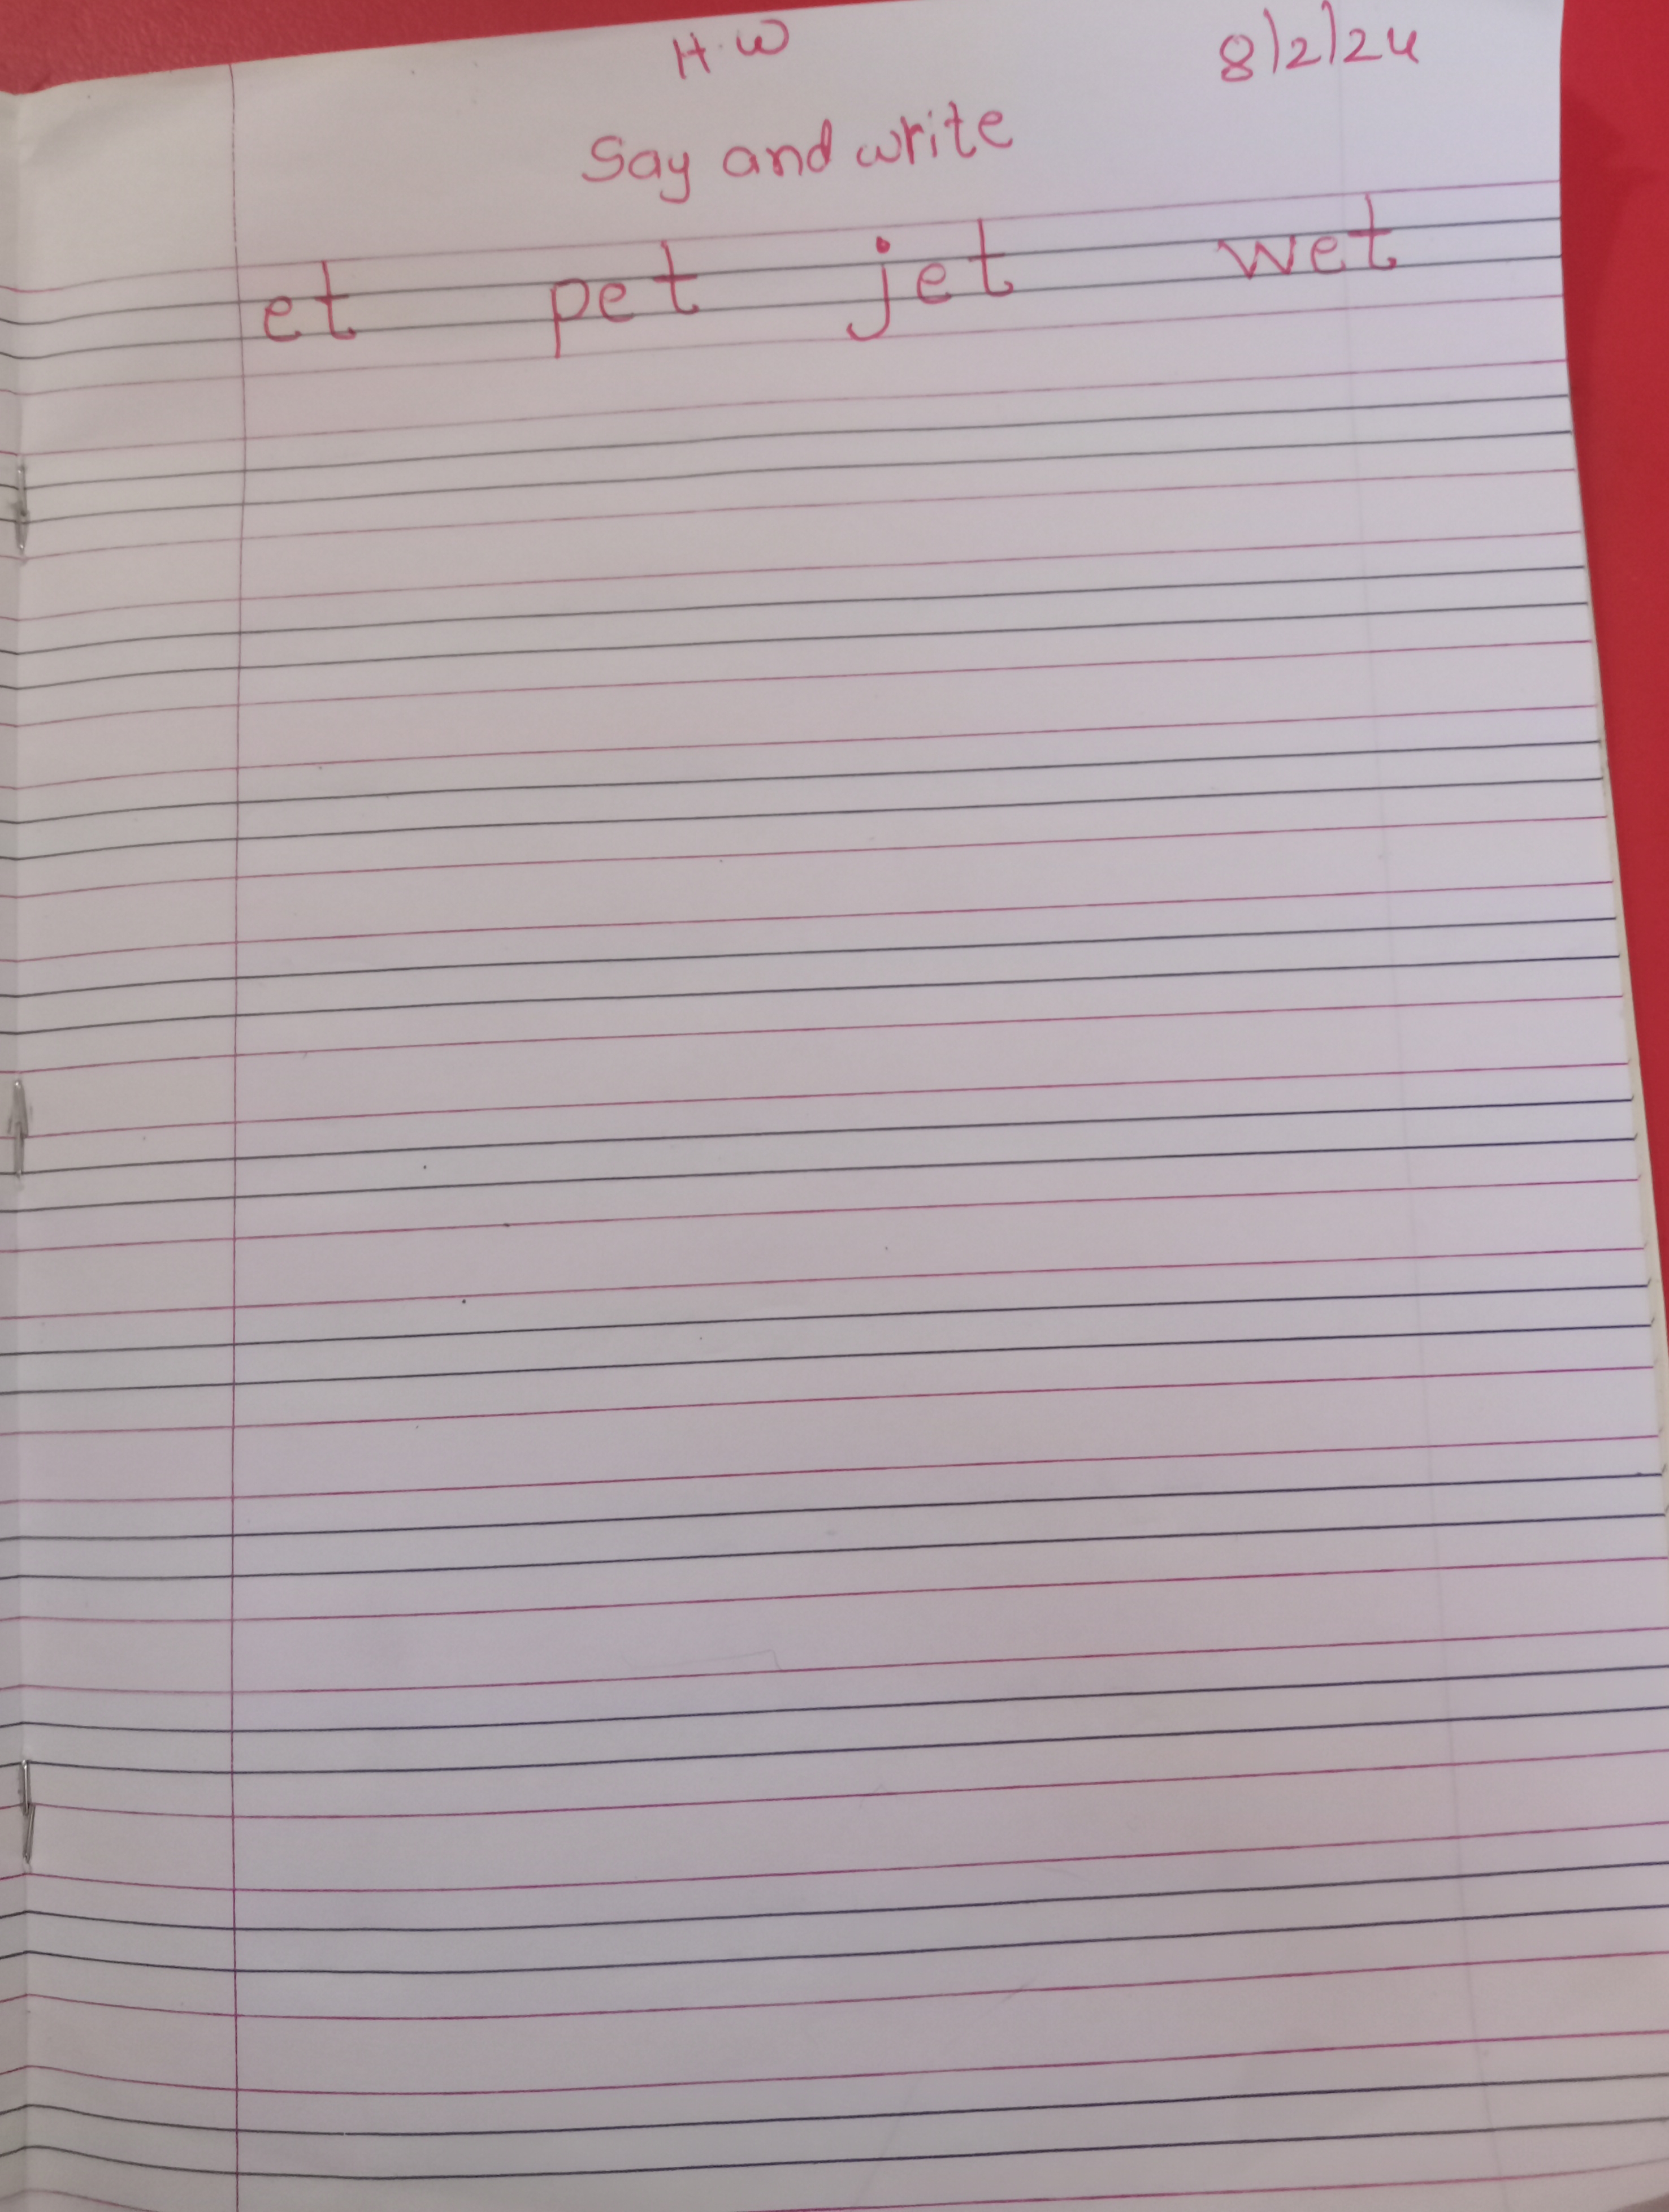 H.W 8/2/24
Say and write
et pet jet wet